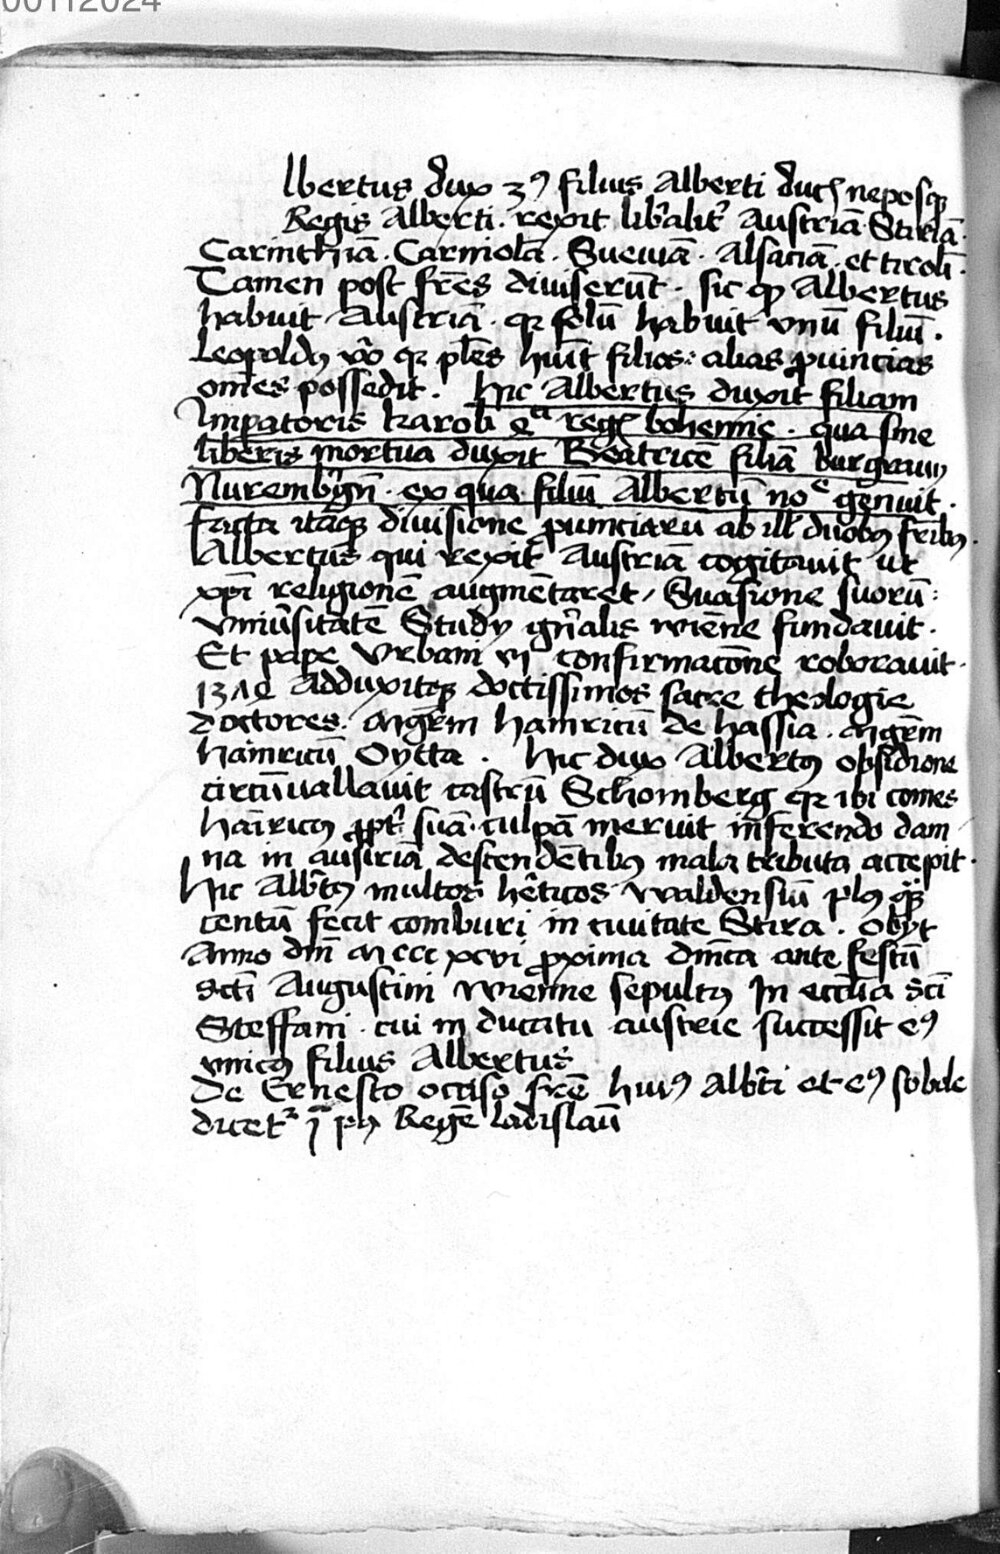 00112024
lbertus dux 3ꝰ filius Alberti duc̄ neposqꝫ
Regis Alberti · rexit lib̄alit̄ Austriā Stiriā ·
Carinthiā · Carniolā · Sueuiā · Alsaciā · et tirolī ·
Tamen post fr̄es diuiserūt · sic qꝫ Albertus
habuit Austriā · qꝛ solū habuit vnū filiū ·
Leopoldꝰ v̄o qꝛ pl̄es hūit filios : alias ꝓuincias
om̄es possedit · hic Albertus duxit filiam
Imꝑatoris karoli 4ti reḡ bohemie · qua sine
liberis mortua duxit Beatricē filiā burgrauij
Nurembḡn̄ · ex qua filiū Albertū noē genuit ·
facta itaqꝫ diuisione ꝓuinciarū ab ill̄ duobꝰ fr̄ibꝰ ·
Albertus qui rexit Austriā cogitauit ut
xp̄i religionē augmētaret / Suasione suorū :
vniūsitatē Studij gn̄alis wiēne fundauit ·
Et pape Vrbani vi confirmacōne roborauit ·
1384 Adduxitqꝫ doctissimos sacre theologie
doctores · mgr̄m hainricū de hassia · mgr̄m
hainricū Oytta · hic dux Albertꝰ obsidione
circūuallauit castrū Schomberg qꝛ ibi comes
hainricꝰ ꝓpt̄ suā culpā meruit inferendo dam
na in austriā descendētibꝰ mala tributa accepit ·
hic Alb̄tꝰ multos hēticos waldensiū plꝰ qꝫ̄
centū fecit comburi in ciuitate Stira · Obyt
Anno dn̄i Mcccxcvi ꝓxima dn̄ica ante festū
scti Augustini wienne sepultꝰ In ecclīa sc̄i
Steffani · cui in ducatu austrie successit eꝰ
vnicꝰ filius Albertus
De Ernesto occiso fr̄e huiꝰ Alb̄ti et eꝰ sobole
dicet̄ Regē ladislaū